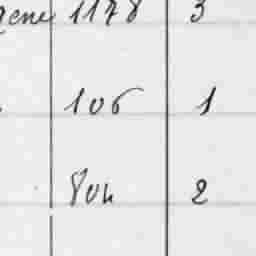 gene 1178 3
106 1
804 2